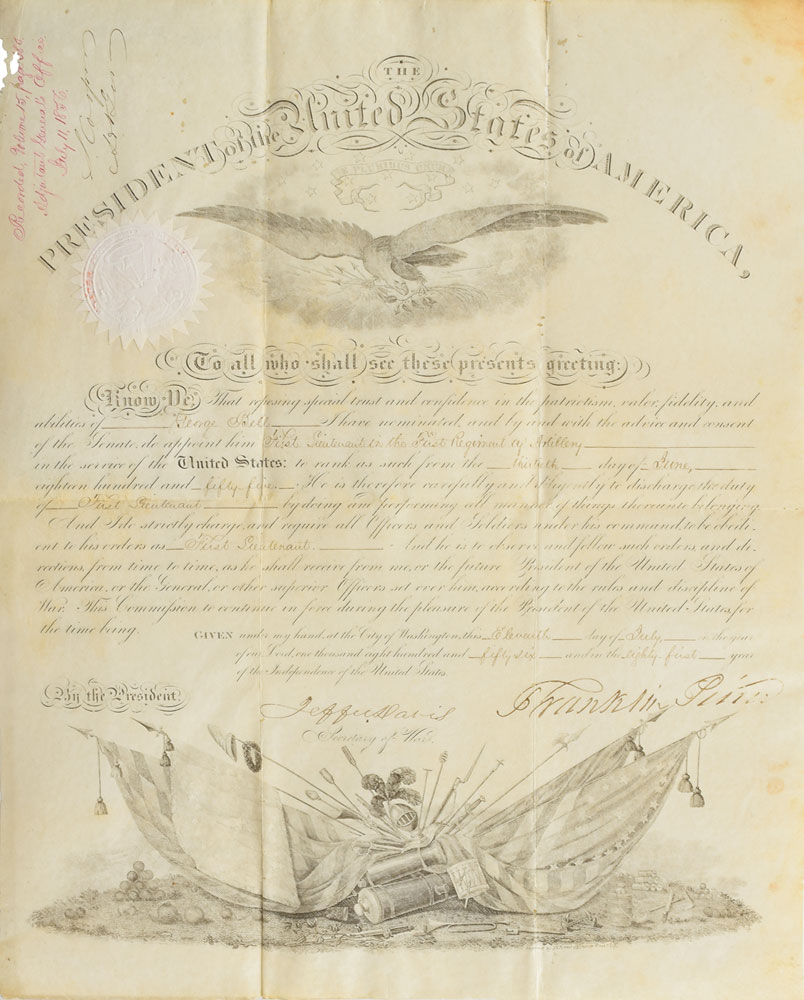 Recorded, Volume 15, page
Adjutant General's Office
July 11, 1856.
THE
PRESIDENT of the United States of AMERICA,
E PLURIBUS UNUM
To all who shall see these presents greeting:
Know Ye, That reposing special trust and confidence in the patriotism, valor, fidelity, and
abilities of George Bell I have nominated, and by and with the advice and consent
of the Senate, do appoint him First Lieutenant in the First Regiment of Artillery
in the service of the United States: to rank as such from the thirtieth day of June,
eighteen hundred and fifty five. He is therefore carefully and diligently to discharge the duty
of First Lieutenant by doing and performing all manner of things thereunto belonging.
And I do strictly charge, and require all Officers and Soldiers under his command, to be obedi-
ent to his orders as First Lieutenant. And he is to observe and follow such orders, and di-
rections, from time to time, as he shall receive from me, or the future President of the United States of
America, or the General, or other superior Officers set over him, according to the rules and discipline of
War. This Commission to continue in force during the pleasure of the President of the United States, for
the time being.
GIVEN under my hand, at the City of Washington, this Eleventh day of July, in the year
of our Lord, one thousand eight hundred and fifty six and in the eighty first year
of the Independence of the United States.
By the President,
Franklin Pierce
Jeffer. Davis
Secretary of War.